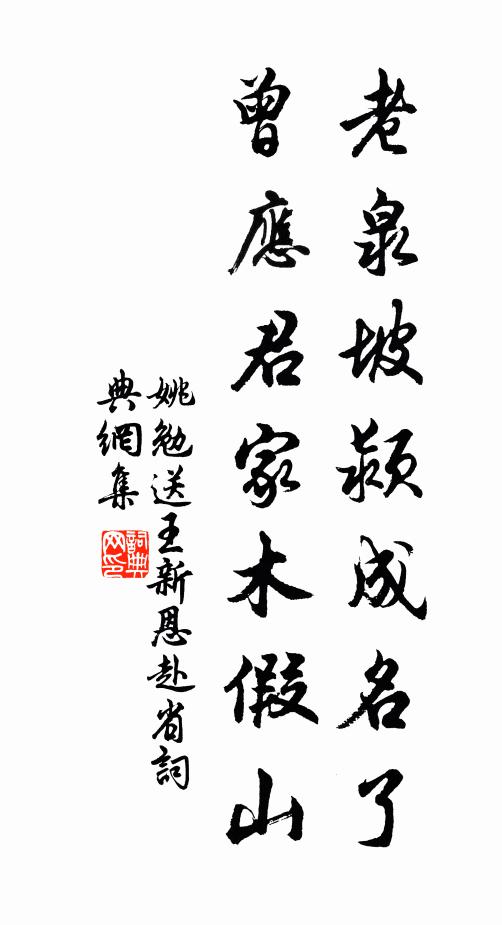 老泉坡颍成名了
曾應君家木假山
姚勉送王新恩赴省詞
典網集
詞典网印